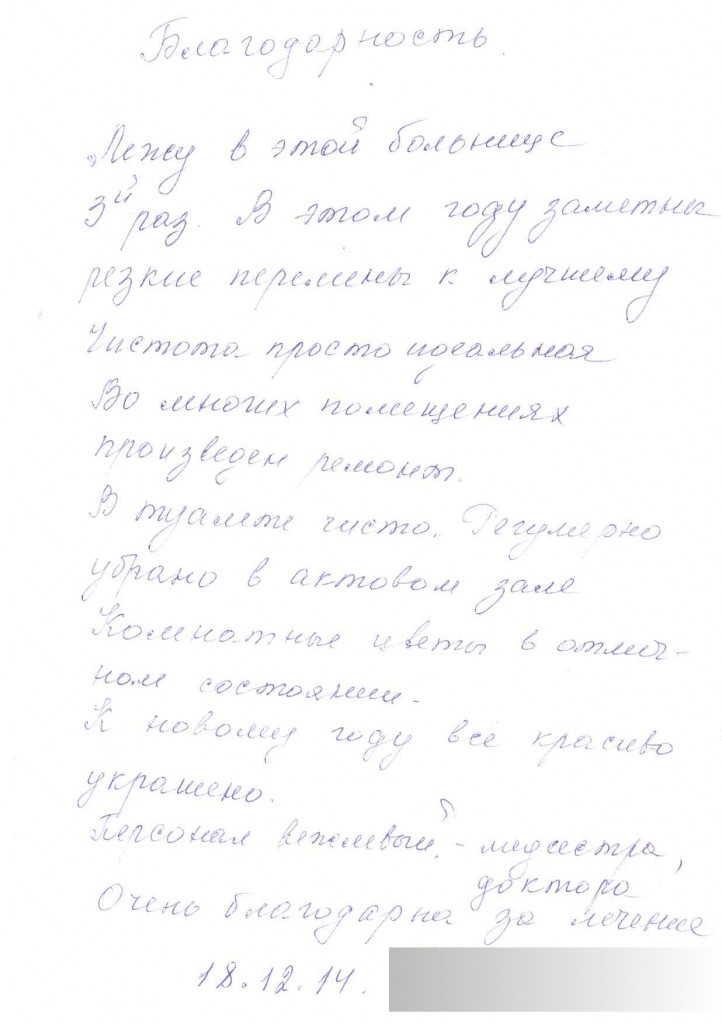 Благодарность.
Лежу в этой больнице
3й раз. В этом году заметны
резкие перемены к лучшему
Чистота просто идеальная
Во многих помещениях
произведен ремонт.
В туалете чисто. Регулярно
убрано в актовом зале
Комнатные цветы в отлич-
ном состоянии.
К новому году всё красиво
украшено.
Персонал вежливый, - медсестра,
доктора
Очень благодарна за лечение
18.12.14.